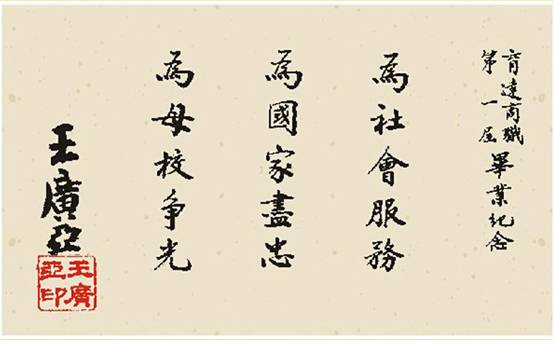 育達商職
第一屆畢業紀念
為社會服務
為國家盡志
為母校爭光
王廣亞
王廣亞印